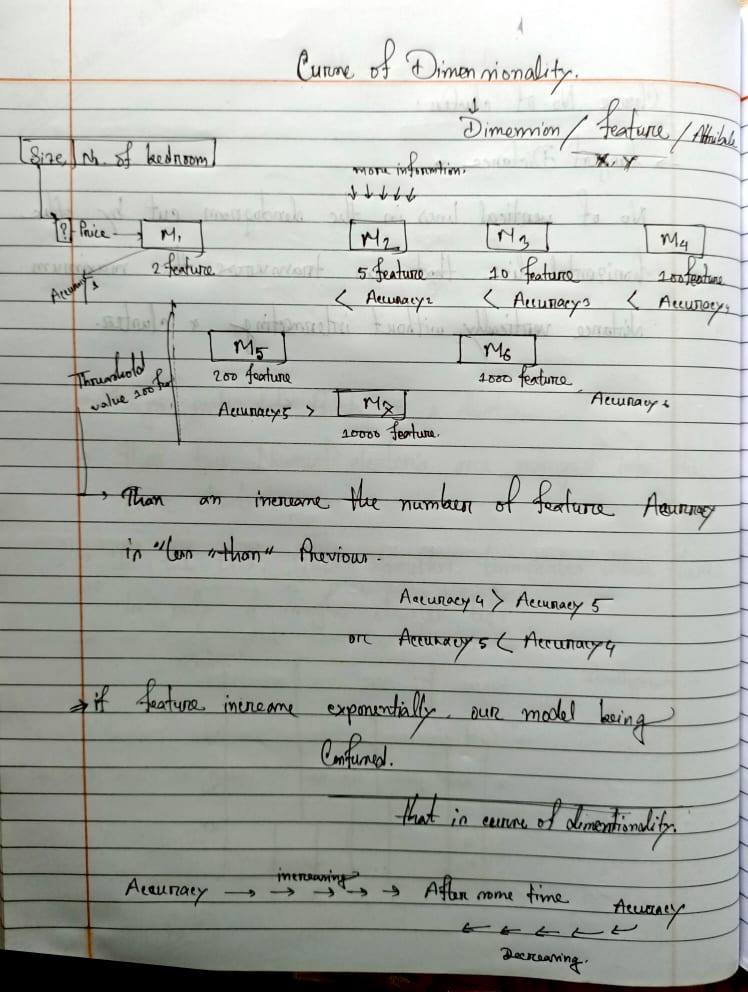 Curse of Dimensionality.
Dimension / feature / Attribute
x, y
Size No. of bedroom
more information.
? Price → M1 M2 M3 M4
2 feature 5 feature 10 feature 100 feature
Accuracy1 < Accuracy2 < Accuracy3 < Accuracy4
M5 M6
Threshold value 100
200 feature 1000 feature
Accuracy5 > M7 Accuracy6
10000 feature.
→ Than an increase the number of feature Accuracy
is "less "than" Previous.
Accuracy 4 > Accuracy 5
or Accuracy 5 < Accuracy 4
⇒ if feature increase exponentially. our model being
Confused.
that is curse of dimentionality.
increasing
Accuracy → → → → → After some time Accuracy
← ← ← ← ←
Decreasing.